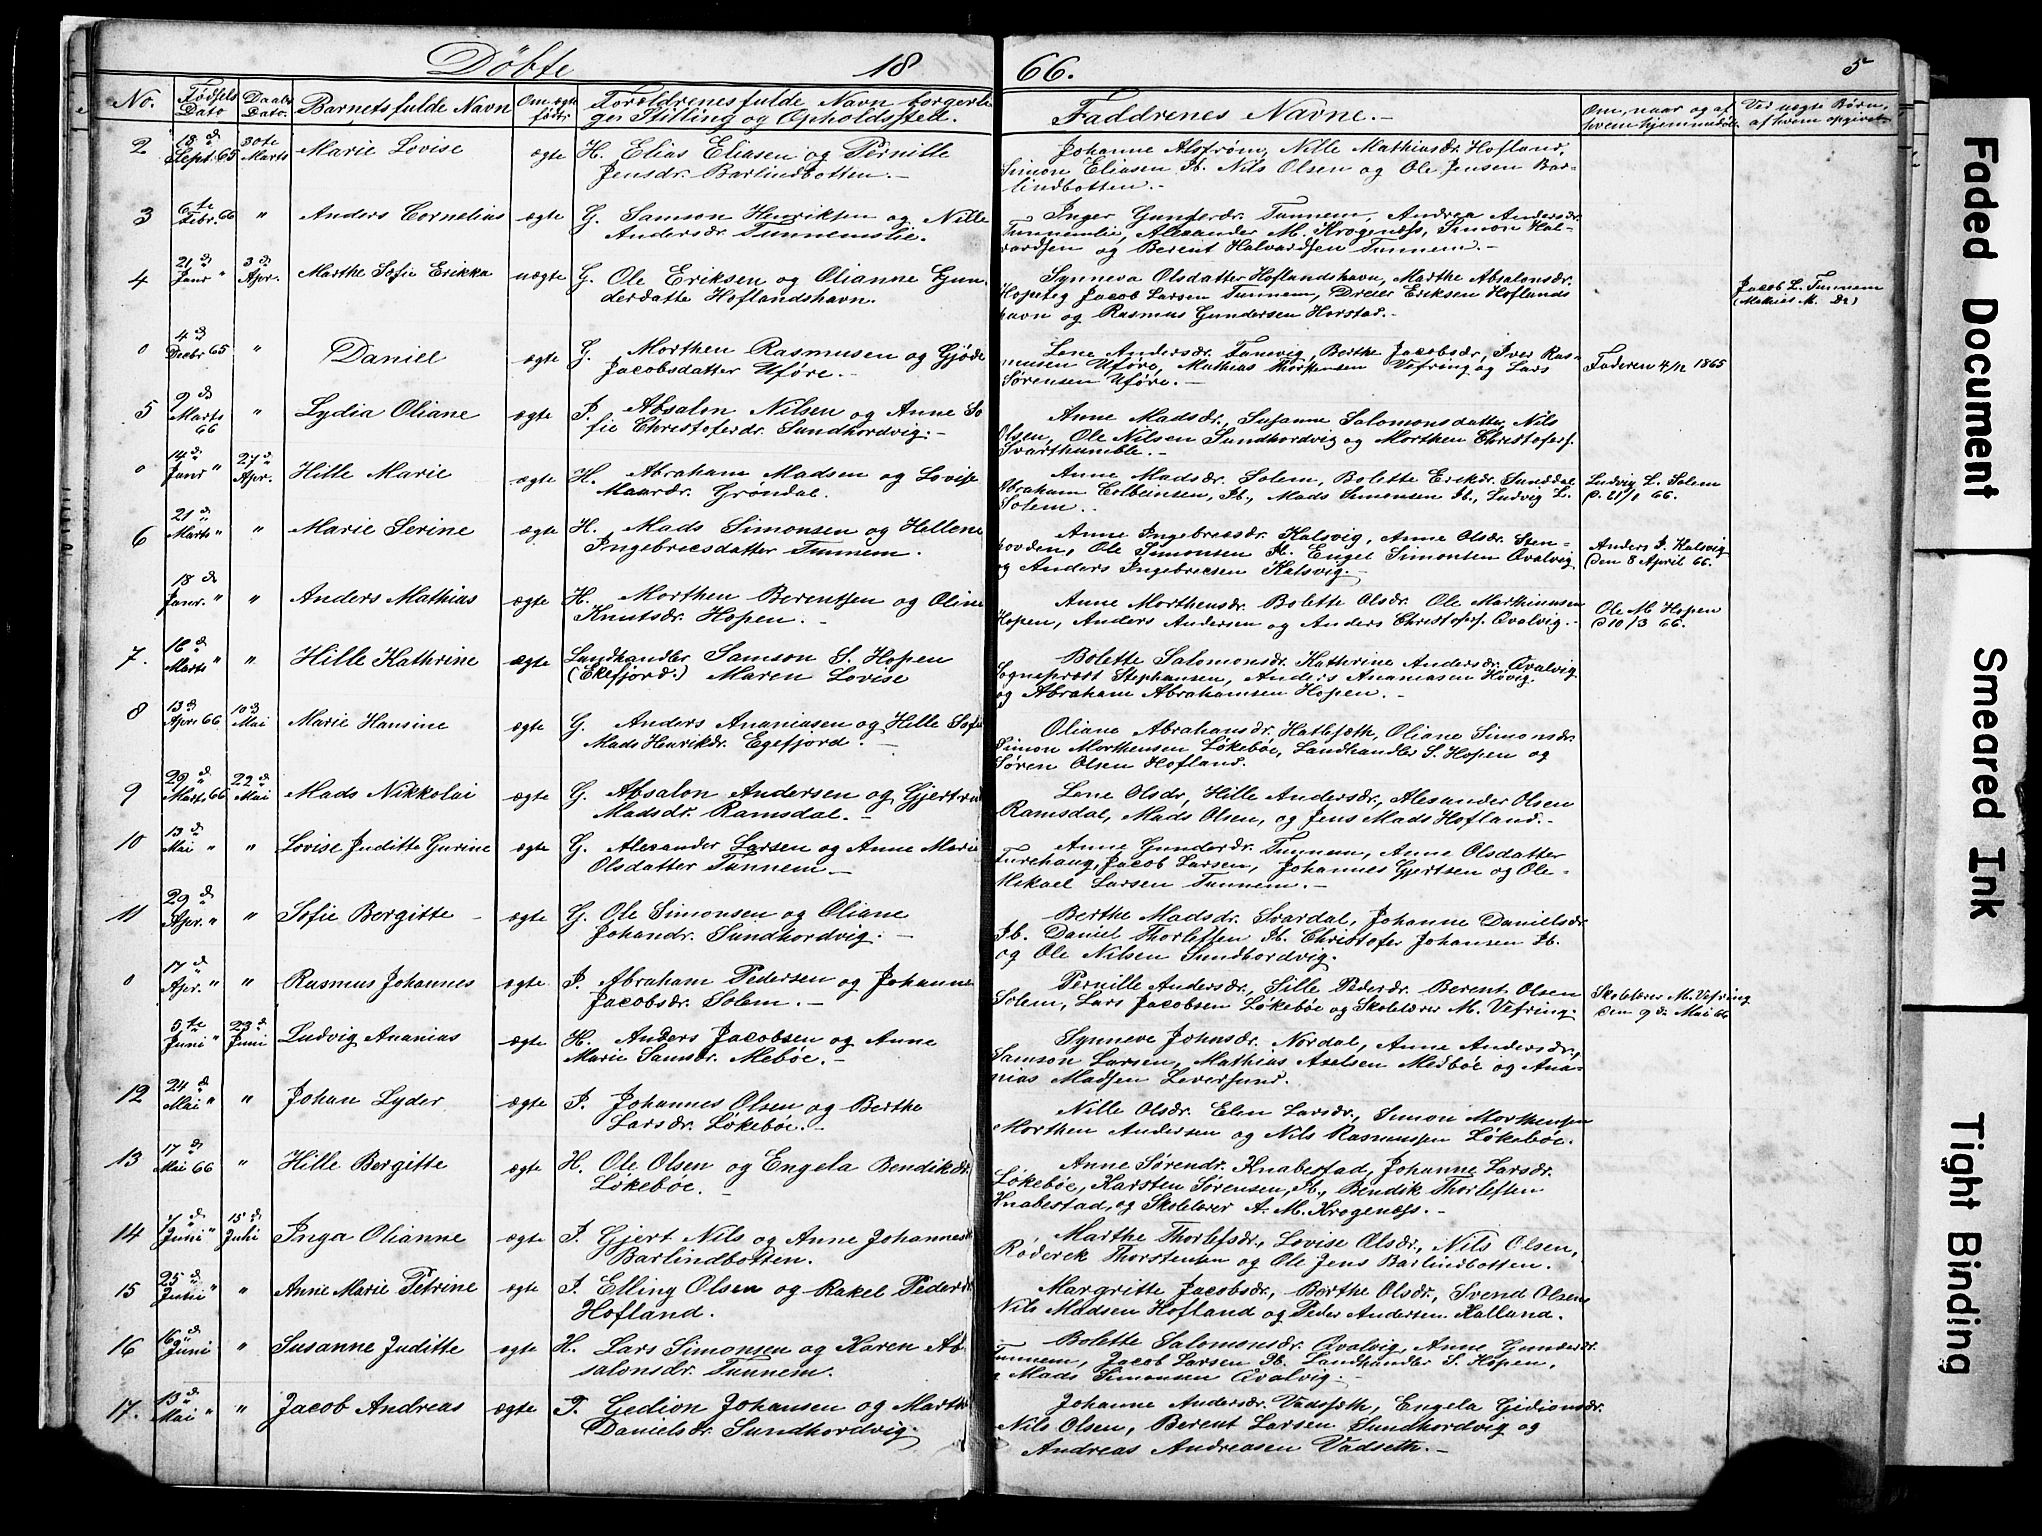 Döbte 18 66. 5
No. Fødsels Dato Daabs Dato. Barnets fulde Navn Om ægte født Forældrenes fulde Navn borgerli- Faddrenes Navne.- Om, naar og af Ved uægte Børn,
ger Stilling og Opholdssted. hvem hjemmedøbt af hvem opgivet
2 18 d Sept. 65 30te Marts Marie Lovise ægte H. Elias Eliasen og Pernille Johanne Alstrøm, Nille Mathiasdr. Hofland,
Jensdr. Barlindbotten.- Simon Eliasen Ib. Nils Olsen og Ole Jensen Bar-
lindbotten.-
3 6te Febr. 66 " Anders Cornelius ægte G. Samson Henriksen og Nille Inger Gunderdr. Tunnem, Andrea Andersdr.
Andersdr. Tunnemslie. Tunnemlie, Alexander M. Krogenæss, Simon Hal-
vardsen og Berent Halvardsen Tunnem.-
4 21 d Janr " 3 d Apr. Marthe Sofie Erikka uægte G. Ole Eriksen og Olianne Gun- Synneva Olsdatter Hoflandshavn, Marthe Absalonsdr. Jacob L. Tunnem
derdatte Hoflandshavn. Jacob Larsen Tunnem, Dreier Eriksen Hoflands
havn og Rasmus Gundersen Horstad.-
0 4 d Decbr 65 " Daniel ægte G. Morthen Rasmusen og Gjøde Lene Andersdr. Fanevig, Berthe Jacobsdr, Iver Ras- Faderen 4/12 1865
Jacobsdatter Uføre.- musen Uføre, Mathias Vefring og Lars
Sørensen Uføre.-
5 9 d Marts 66 " Lydia Oliane ægte I. Absalon Nilsen og Anne So Anne Madsdr., Susanne Salomonsdatter, Nils
fie Christoferdr. Sundhordvig.- Olsen, Ole Nilsen Sundhordvig og Morthen Christofers.
Svarthumble.-
0 14 d Janr " 27 d Apr. Hille Marie ægte H. Abraham Madsen og Lovise Anne Madsdr. Solem, Bolette Erikdr. Sunddal Ludvig L. Solem
Grøndal. Abraham Colbeinsen, Ib., Mads Simonsen Ib., Ludvig L. d. 21/1 66.
Solem..
6 21 d Marts " " Marie Serine ægte H. Mads Simonsen og Hellene Anne Ingebricsdr. Kalsvig, Anne Olsdr. Sten- Anders I. Kalsvig
Ingebricsdatter Tunnem. hovden, Ole Simonsen Ib. Engel Simonsen Qvalvig den 8 April 66.
og Anders Ingebricsen Kalsvig.-
18 d Janr. " " Anders Mathias ægte H. Morthen Berentsen og Oline Anne Morthensdr. Bolette Olsdr. Ole Marthinusen Ole M. Hopen
Knutsdr. Hopen.- Hopen, Anders Andersen og Anders Christofers. Qvalvig.- d 10/3 66.
7. 16 d Marts " " Hille Kathrine ægte Landhandler Samson S. Hopen Bolette Salomonsdr. Kathrine Andersdr. Qvalvig
(Ekefjord.) Maren Lovise Sognepræst Stephansen, Anders Ananiasen Høvig.
og Abraham Abrahamsen Hopen.-
8 13 d Apr. 66 10 d Mai Marie Hansine ægte G. Anders Ananiasen og Helle Sofie Oliane Abrahamsdr. Hatlesæth, Oliane Simonsdr.
Mads Henrikdr. Egefjord.- Simon Morthensen Løkebøe, Landhandler S. Hopen og
Søren Olsen Hofland.
9 29 d Marts 66 22 d Mai Mads Nikkolai ægte G. Absalon Andersen og Gjertrud Lene Olsdr, Hille Andersdr., Alexander Olsen
Madsdr. Ramsdal.- Ramsdal, Mads Olsen, og Jens Mads Hofland.-
10 13 d Mai " " Lovise Juditte Gurine ægte G. Alexander Larsen og Anne Marie Anne Gunderdr. Tunnem, Anne Olsdatter
Olsdatter Tunnem.- Turehaug, Jacob Larsen, Johannes Gjertsen og Ole-
Mikael Larsen Tunnem.-
11 29 d Apr. " " Sofie Bergitte - ægte G. Ole Simonsen og Oliane Berthe Madsdr. Svardal, Johanne Danielsdr
Johandr. Sundhordvig.- Ib. Daniel Thorlefsen Ib. Christofer Johansen Ib.
og Ole Nilsen Sundhordvig.
0 17 d Apr. " " Rasmus Johannes ægte I. Abraham Pedersen og Johanne Pernille Andersdr., Sille Pederdr. Berent Olsen Skolelærer M. Vefring
Jacobsdr. Solem.- Solem, Lars Jacobsen Løkebøe og Skolelærer M. Vefring. den 9 d. Mai 66
5te Juni " 23 d Juni Ludvig Ananias ægte H. Anders Jacobsen og Anne Synneve Johnsdr. Nordal, Anne Andersdr.,
Marie Samsdr. Mebøe.- Samson Larsen, Mathias Axelsen Medbøe og Ana-
nias Madsen Leversund.
12 24 d Mai " " Johan Lyder ægte I. Johannes Olsen og Berthe Nille Olsdr. Elen Larsdr., Simon Morthensen
Larsdr. Løkebøe.- Morthen Andersen og Nils Rasmussen Løkebøe.
13 17 d Mai 66 " Hille Bergitte ægte H. Ole Olsen og Engela Bendikdr. Anne Sørendr. Knabestad, Johanne Larsdr.
Løkebøe.- Løkebøe, Karsten Sørensen, Ib., Bendik Thorlefsen
Knabestad, og Skolelærer A. M. Krogenæss.-
14 7 d Juni " 15 d Juli Inga Olianne ægte I. Gjert Nils og Anne Johannesd Marthe Thorlefsdr., Lovise Olsdr., Nils Olsen,
Barlindbotten. Roderek Thorstensen og Ole Jens Barlindbotten.
15 25 d Juni " " Anne Marie Petrine ægte I. Elling Olsen og Rakel Pederdr Margritte Jacobsdr., Berthe Olsdr., Svend Olsen
Hofland. Nils Madsen Hofland og Peder Andersen Kalland.
16 16 d Juni " Susanne Juditte ægte H. Lars Simonsen og Karen Ab- Bolette Salomonsdr. Qvalvig, Anne Gunderdr.
salonsdr. Tunnem. Tunnem, Jacob Larsen Ib. Landhandler S. Hopen,
Mads Simonsen Qvalvig.-
17. 13 d Mai " " Jacob Andreas ægte I. Gedion Johansen og Marthe Johanne Andersdr. Vadsæth, Engela Gidionsdr.
Danielsdr. Sundhordvig. Nils Olsen, Berent Larsen Sundhordvig og
Andreas Andreasen Vadseth.-
Faded Document
Smeared Ink
Tight Binding